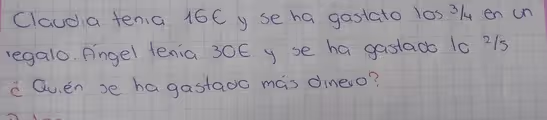 Claudia tenia 16€ y se ha gastato los 3/4 en un
regalo. Ángel tenía 30€ y se ha gastado lo 2/5
¿ Quién se ha gastado más dinero?